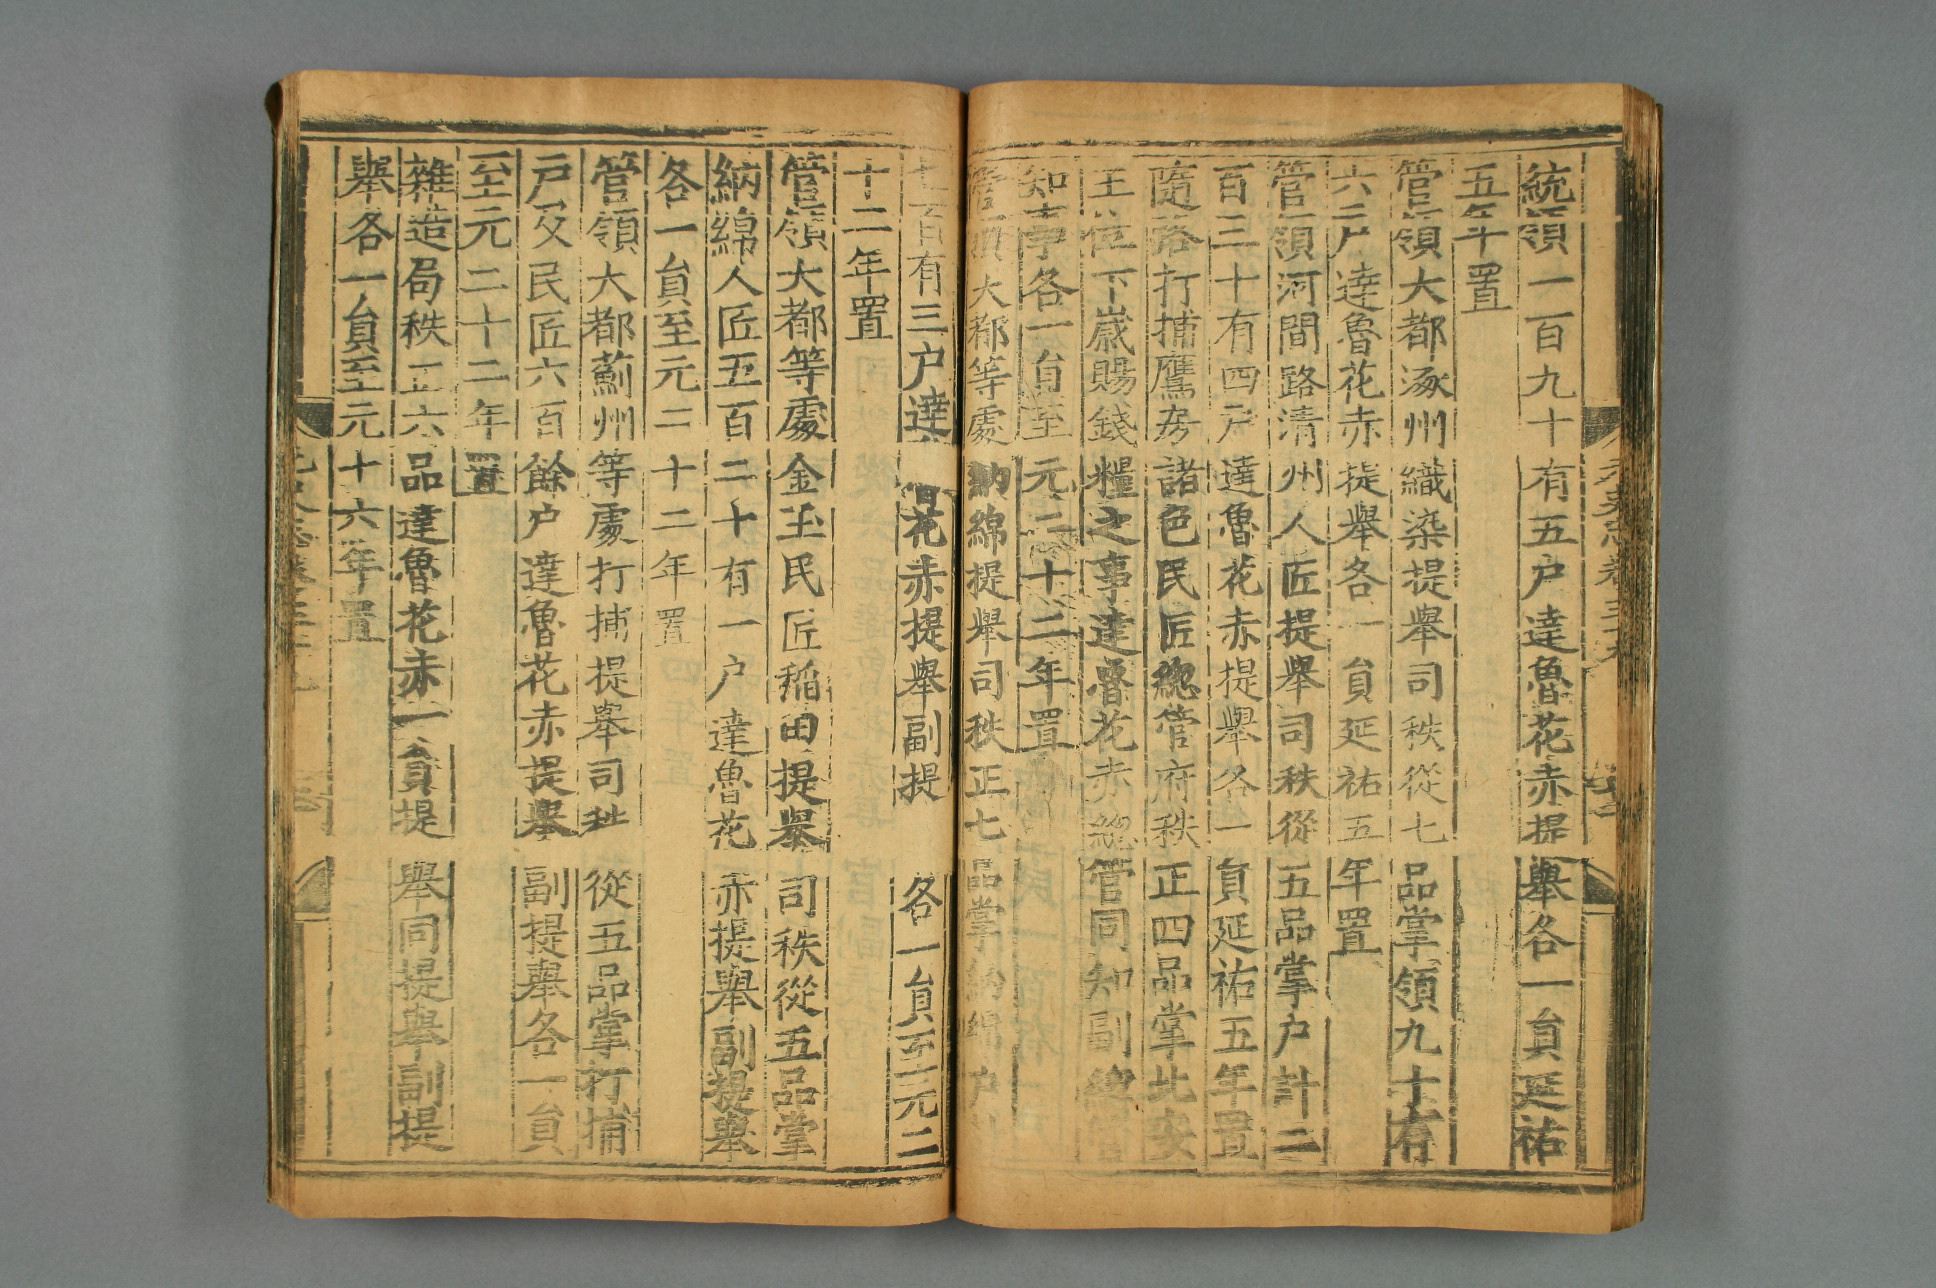 統領一百九十有五户達魯花赤提舉各一員延祐
五年置
管領大都涿州織染提舉司秩從七品掌領九十有
六户達魯花赤提舉各一員延祐五年置
管領河間路清州人匠提舉司秩從五品掌户計二
百三十有四户達魯花赤提舉各一員延祐五年置
隨路打捕鷹房諸色民匠緫管府秩正四品掌北安
王位下歲賜錢糧之事達魯花赤緫管同知副緫管
知事各一員至元二十二年置
管領大都等處納綿提舉司秩正七品掌納綿户計
七百有三户達魯花赤提舉副提各一員至元二
十二年置
管領大都等處金玉民匠稻田提舉司秩從五品掌
納綿人匠五百二十有一户達魯花赤提舉副提舉
各一員至元二十二年置
管領大都薊州等處打捕提舉司秩從五品掌打捕
户及民匠六百餘户達魯花赤提舉副提舉各一員
至元二十二年置
雜造局秩正六品達魯花赤一員提舉同提舉副提
舉各一員至元十六年置